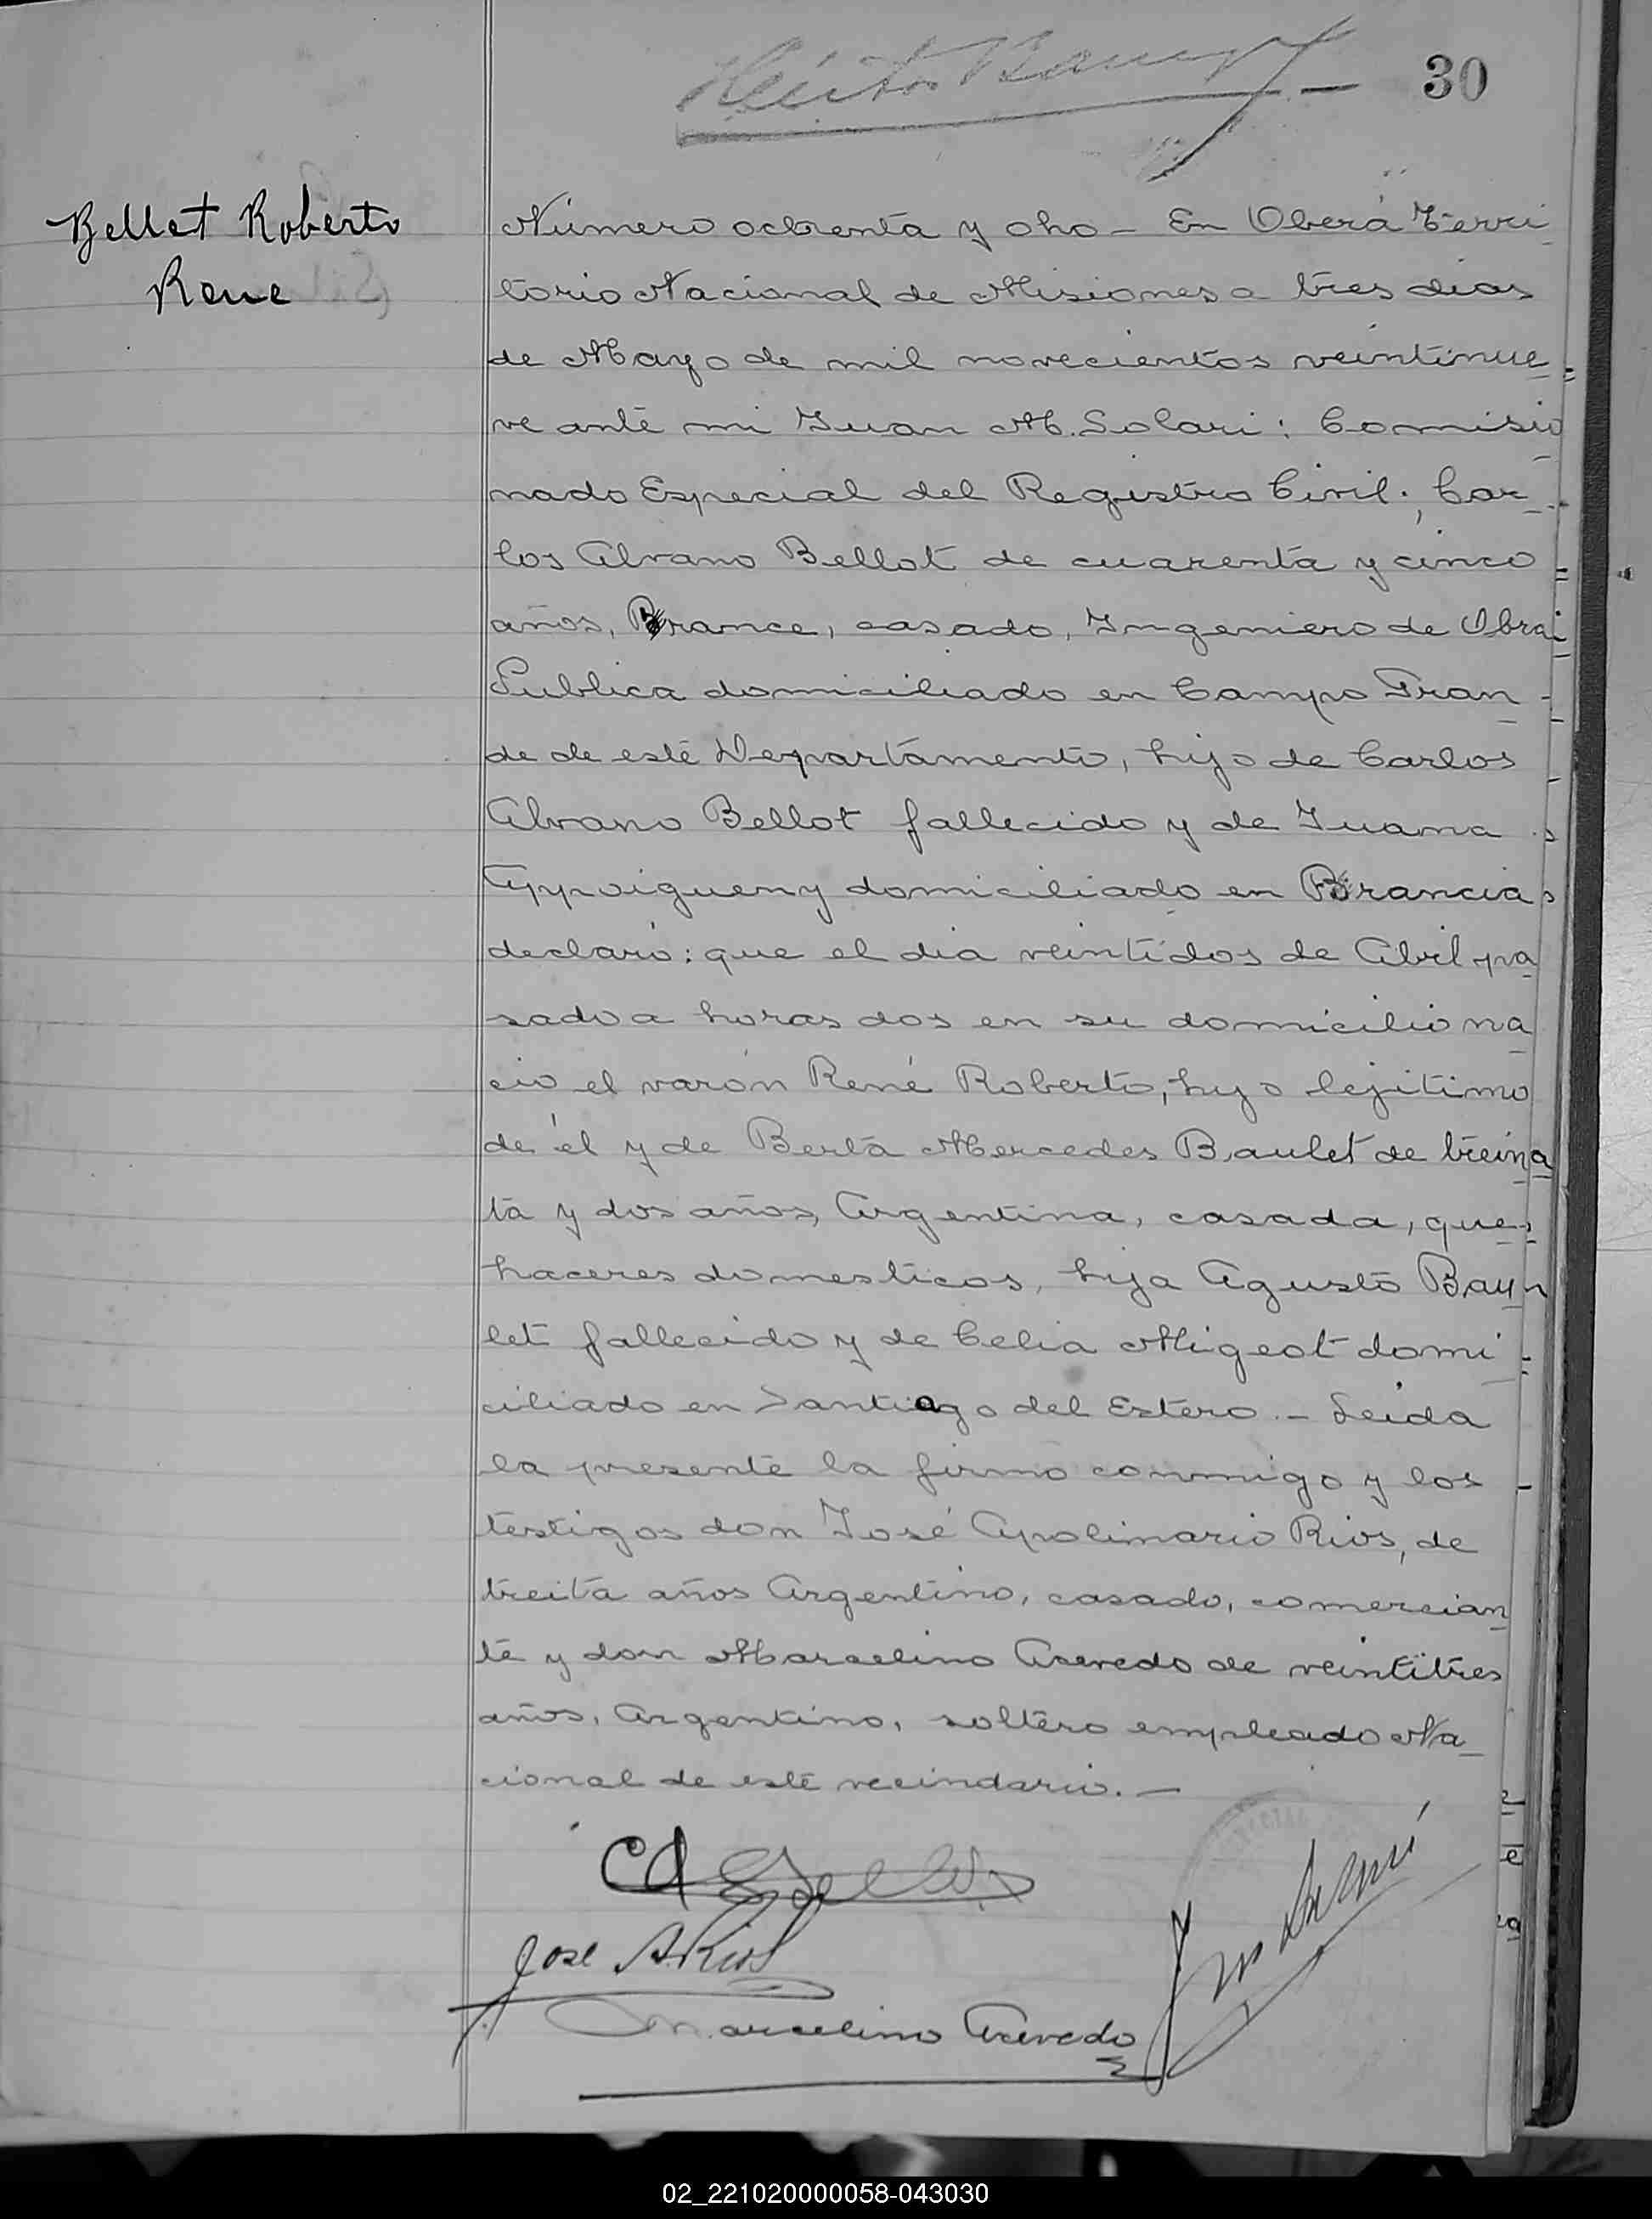 30
Bellet Roberto
Rene
Número ochenta y oho - En Oberá Terri
torio Nacional de Misiones a tres dias
de Mayo de mil novecientos veintinue
ve ante mi Juan M. Solari; Comisio
nado Especial del Registro Civil; Car
los Alvano Bellot de cuarenta y cinco
años, France, casado, Ingeniero de Obra
Publica domiciliado en Campo Gran
de de este Departamento, hijo de Carlos
Alvano Bellot fallecido y de Juana
domiciliado en Francia
declaró: que el dia veintidos de Abril pa
sado a horas dos en su domicilio na
cio el varón René Roberto, hijo lejitimo
de él y de Berta Mercedes Baulet de trein
ta y dos años, Argentina, casada, que
haceres domesticos, hija Agusto Bau
let fallecido y de Celia Migeot domi
ciliado en Santiago del Estero. - Leida
la presente la firmo conmigo y los
testigos don José Apolinario Rios, de
treita años Argentino, casado, comercian
te y don Marcelino Acevedo de veintitres
años, Argentino, soltero empleado Na
cional de este vecindario. -
Jose A. Rios
Marcelino Acevedo
02_221020000058-043030